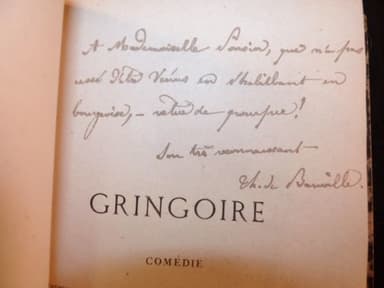 A Mademoiselle Ponsin, qui n'a pas
cessé d'être Vénus en s'habillant en
bourgeoise, – vêtue de pourpre!
Son très reconnaissant
Th. de Banville.
GRINGOIRE
COMÉDIE